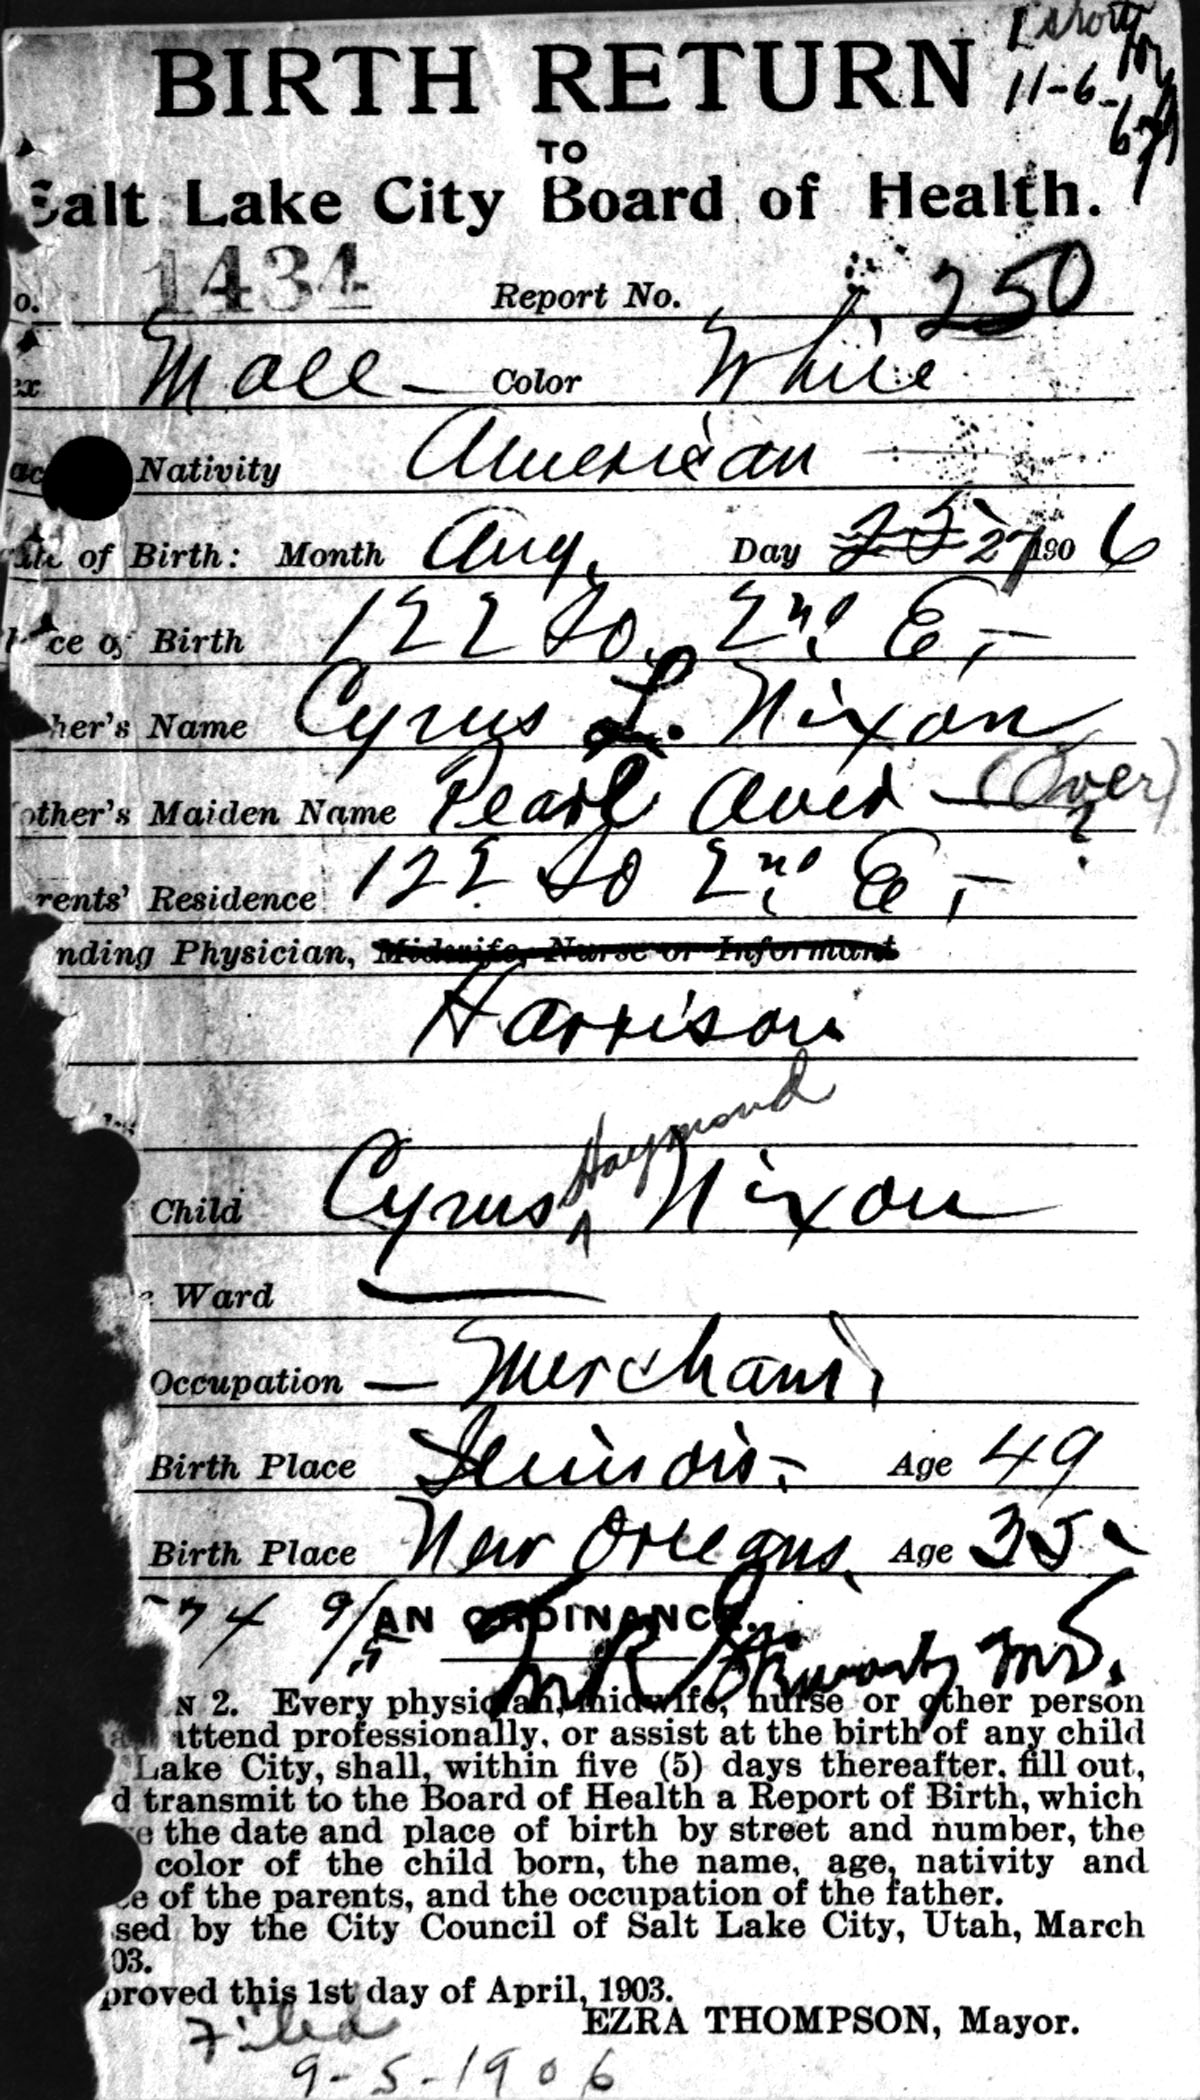 11-6-67
BIRTH RETURN
TO
Salt Lake City Board of Health.
o. 1434 Report No. 250
ex Male Color White
Nativity American
ate of Birth: Month Aug. Day 25 27 1906
ce of Birth 122 So. 2nd E,
her's Name Cyrus L. Nixon
other's Maiden Name Pearl (Over)
rents' Residence 122 So 2nd E,
nding Physician, Midwife, Nurse or Informant
Harrison
Haymond
Child Cyrus ^ Nixon
e Ward
Occupation — Merchant,
Birth Place Illinois, Age 49
Birth Place New Orleans, Age 35
74 9/5 AN ORDINANCE.
M R Stewart M.D.
N 2. Every physician, midwife, nurse or other person
attend professionally, or assist at the birth of any child
Lake City, shall, within five (5) days thereafter, fill out,
d transmit to the Board of Health a Report of Birth, which
e the date and place of birth by street and number, the
color of the child born, the name, age, nativity and
e of the parents, and the occupation of the father.
sed by the City Council of Salt Lake City, Utah, March
03.
proved this 1st day of April, 1903.
EZRA THOMPSON, Mayor.
Filed
9-5-1906